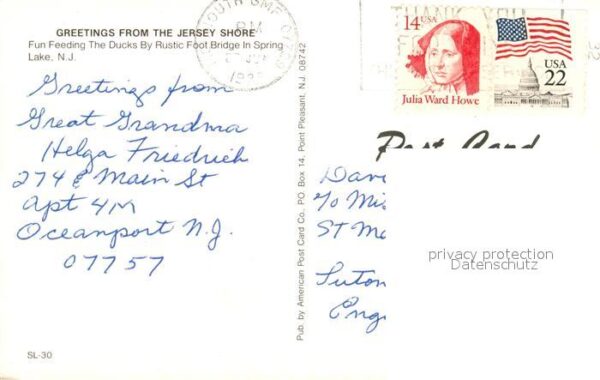 GREETINGS FROM THE JERSEY SHORE
Fun Feeding The Ducks By Rustic Foot Bridge In Spring
Lake, N.J.
Greetings from
Great Grandma
Helga Friedrich
274 E Main St
Apt 4M
Oceanport N.J.
07757
SL-30
Pub. by American Post Card Co. PO Box 14, Point Pleasant, N.J. 08742
PM
THANK YOU
14 USA
Julia Ward Howe
USA
22
Post Card
Dav
c/o Mi
ST M
Suton
Eng
privacy protection
Datenschutz